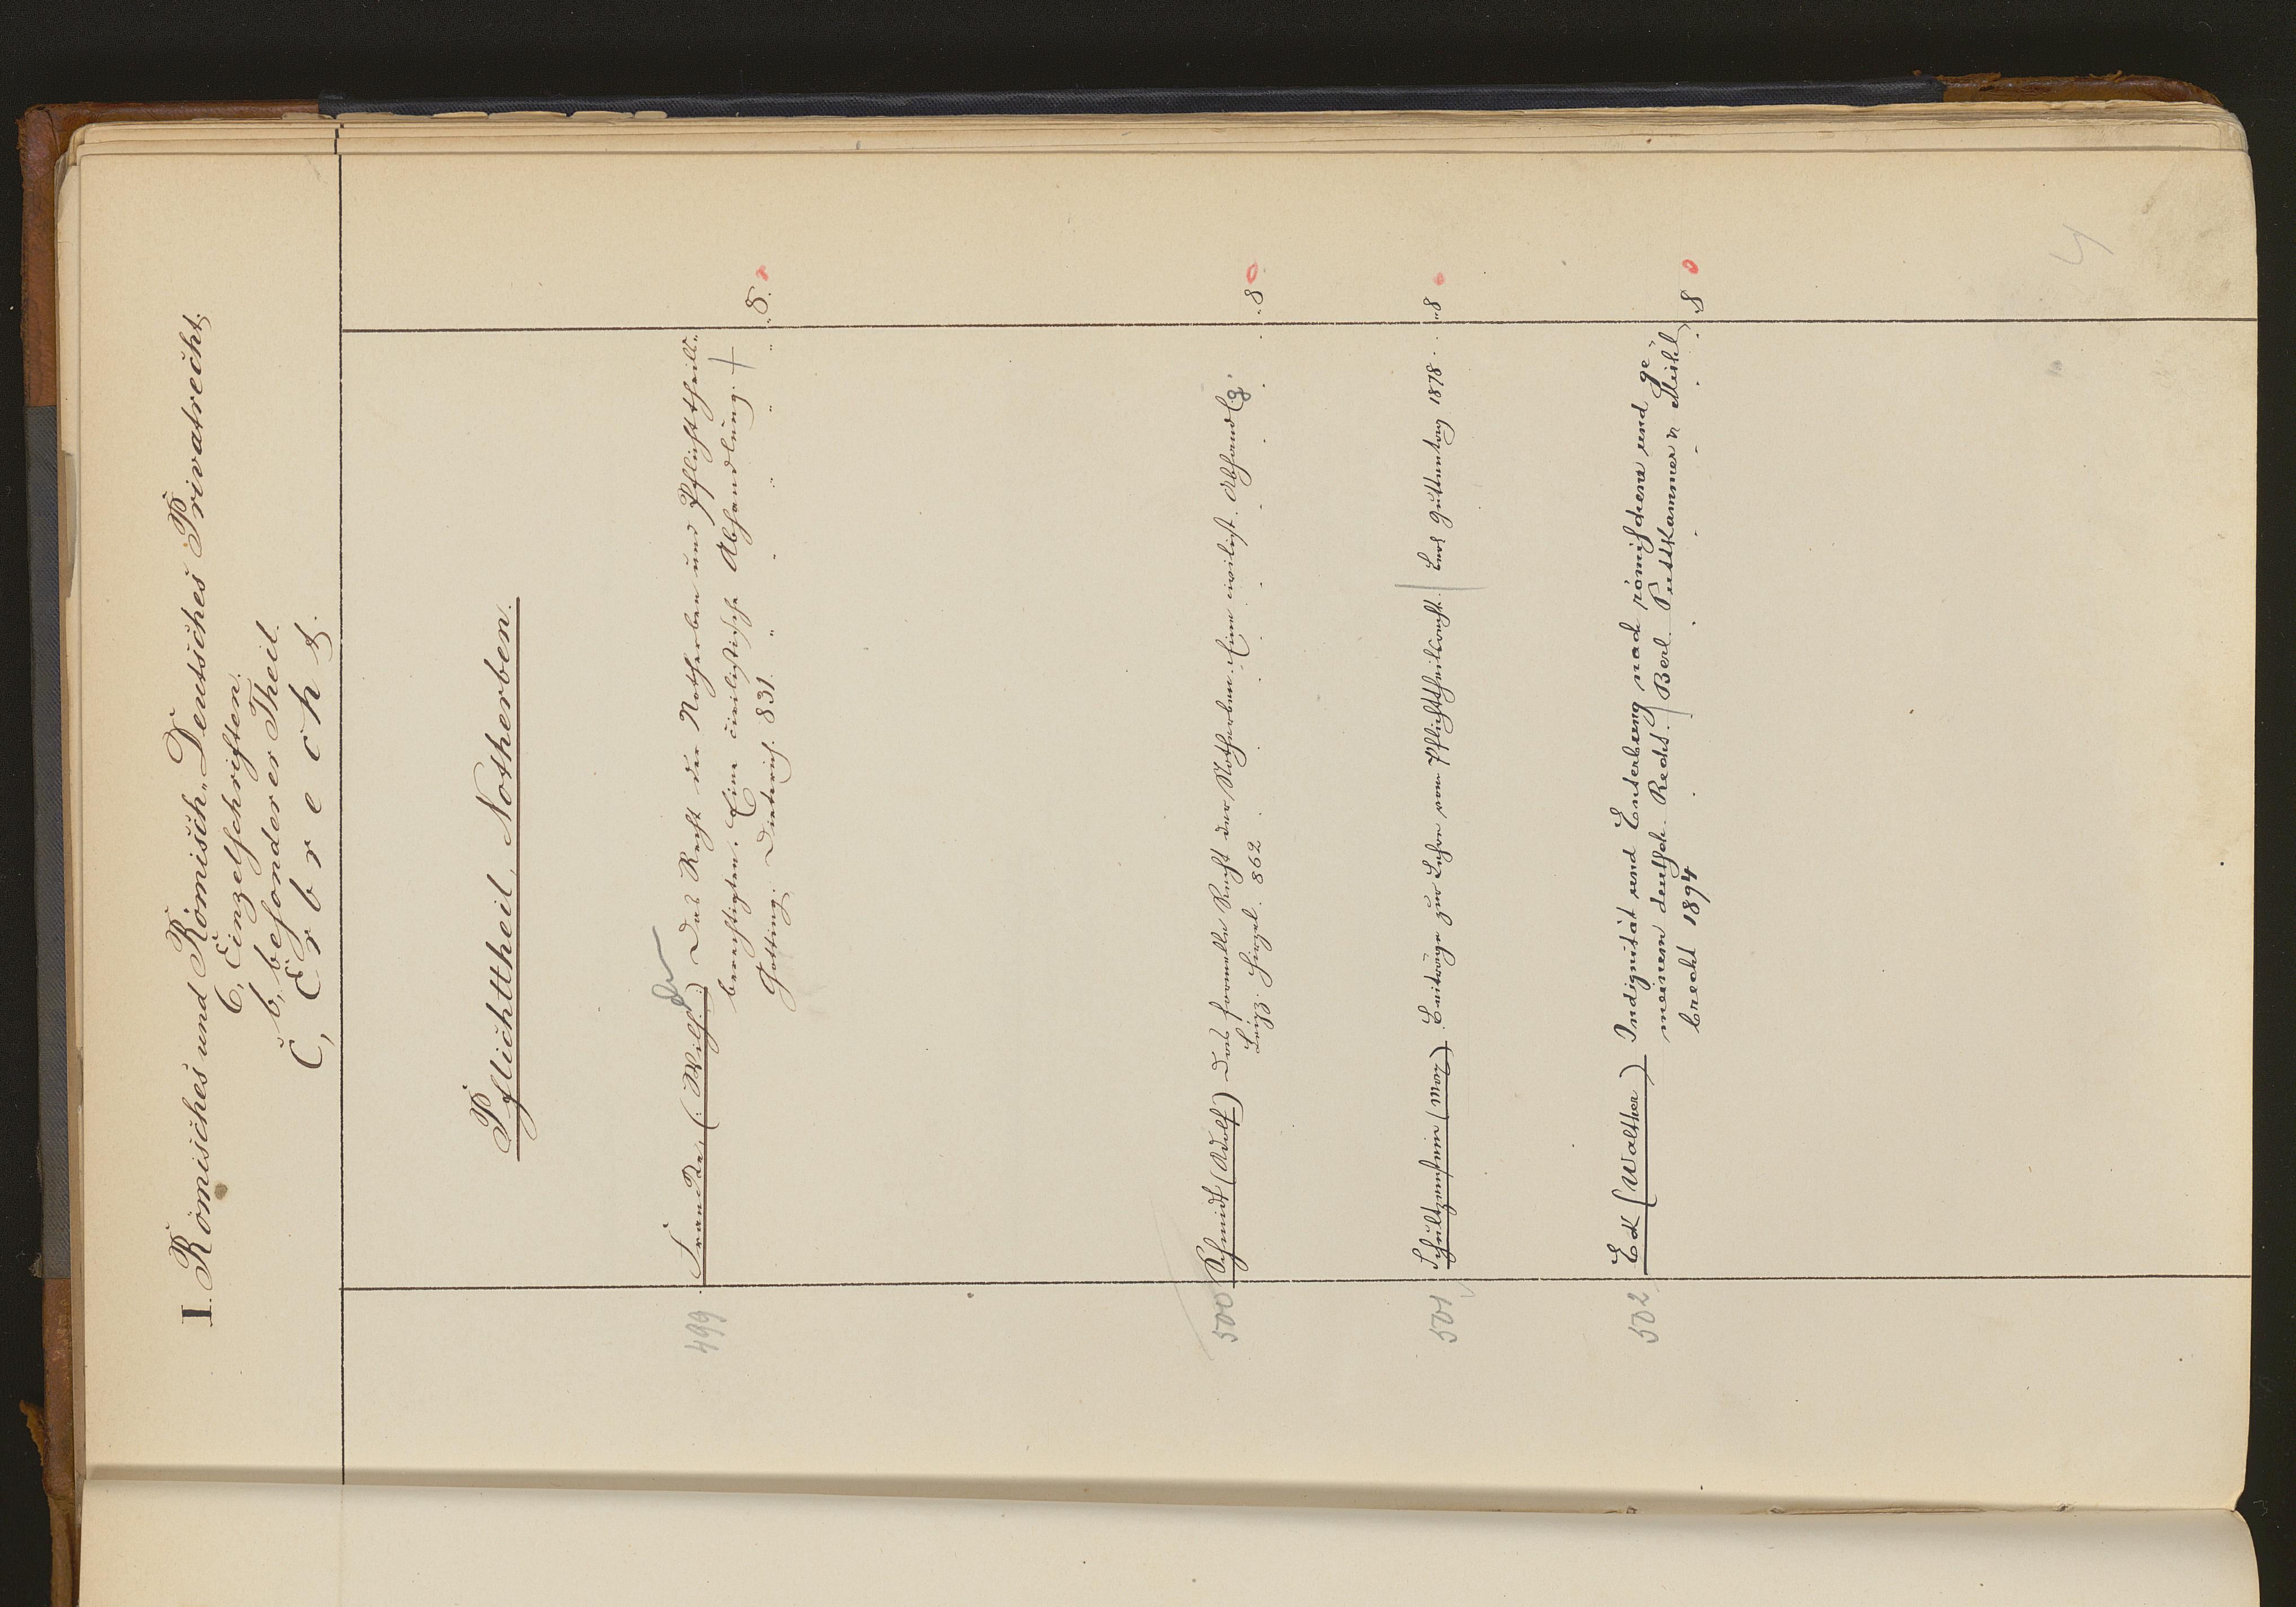 I. Römisches und Römisch-Deutsches Privatrecht.
C, Einzelschriften.
b, besonderer Theil.
C, Erbrecht.
Pflichttheil, Notherben.
499 Francke, (: Wilh. :) Das Recht der Notherben und Pflichttheils-
berechtigten. Eine civilistische Abhandlung.
Götting. Dieterich. 831. " " " " " " 8.
500 Schmidt (Adolf) Das formelle Recht der Notherben. Eine civilist. Abhandlg.
Leipz. Hirzel. 862 . . . . . . . . 8
501 Schultzenstein (Max) Beiträge zur Lehre vom Pflichttheilsrecht. Berl. Guttentag 1878 . . 8
502 Eck (Walther) Indignität und Enterbung nach römischem und ge-
meinem deutsch. Recht. Berl. Puttkammer u Mühl-
brecht 1894 . . . . . . 8